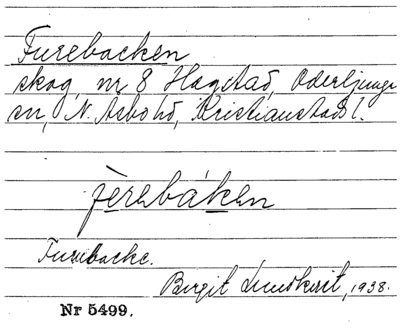 Furebacken
skog, nr 8 Hagstad, Oderljunga
sn, N. Åsbo hd, Kristianstads l.
fèrebáken
Furebacke.
Birgit Lundkvist, 1938.
Nr 5499.